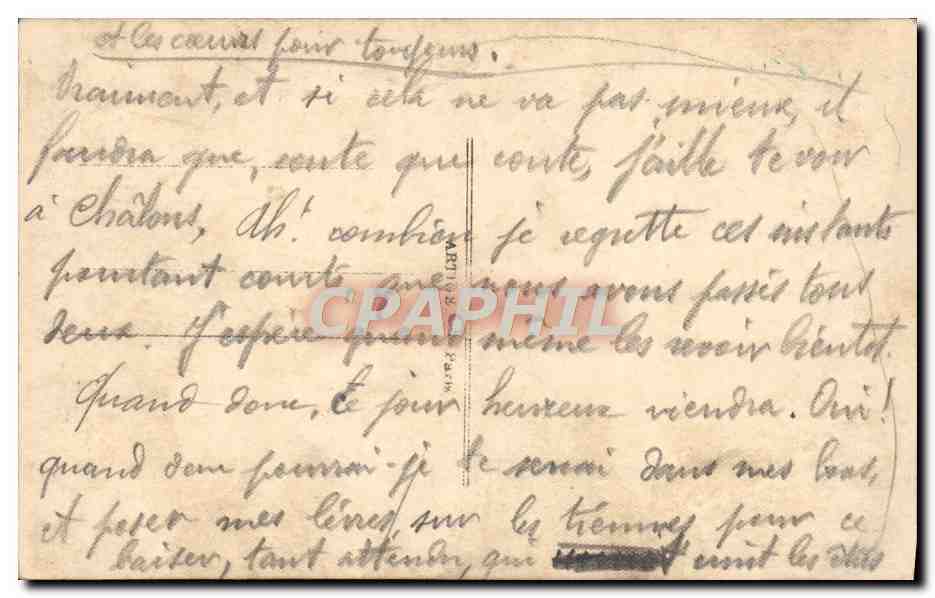 et les cœurs pour toujours.
Vraiment, et si cela ne va pas mieux, il
faudra que, coute que coute, j'aille te voir
à Châlons, Ah! combien je regrette ces instants
pourtant courts que nous avons passés tous
deux. J'espère quand même les revoir bientot.
Quand donc, le jour heureux viendra. Oui!
quand donc pourrai-je te serrer dans mes bras,
et poser mes lèvres sur les tiennes pour ce
baiser, tant attendu, que unit les
CPAPHIL
Paris